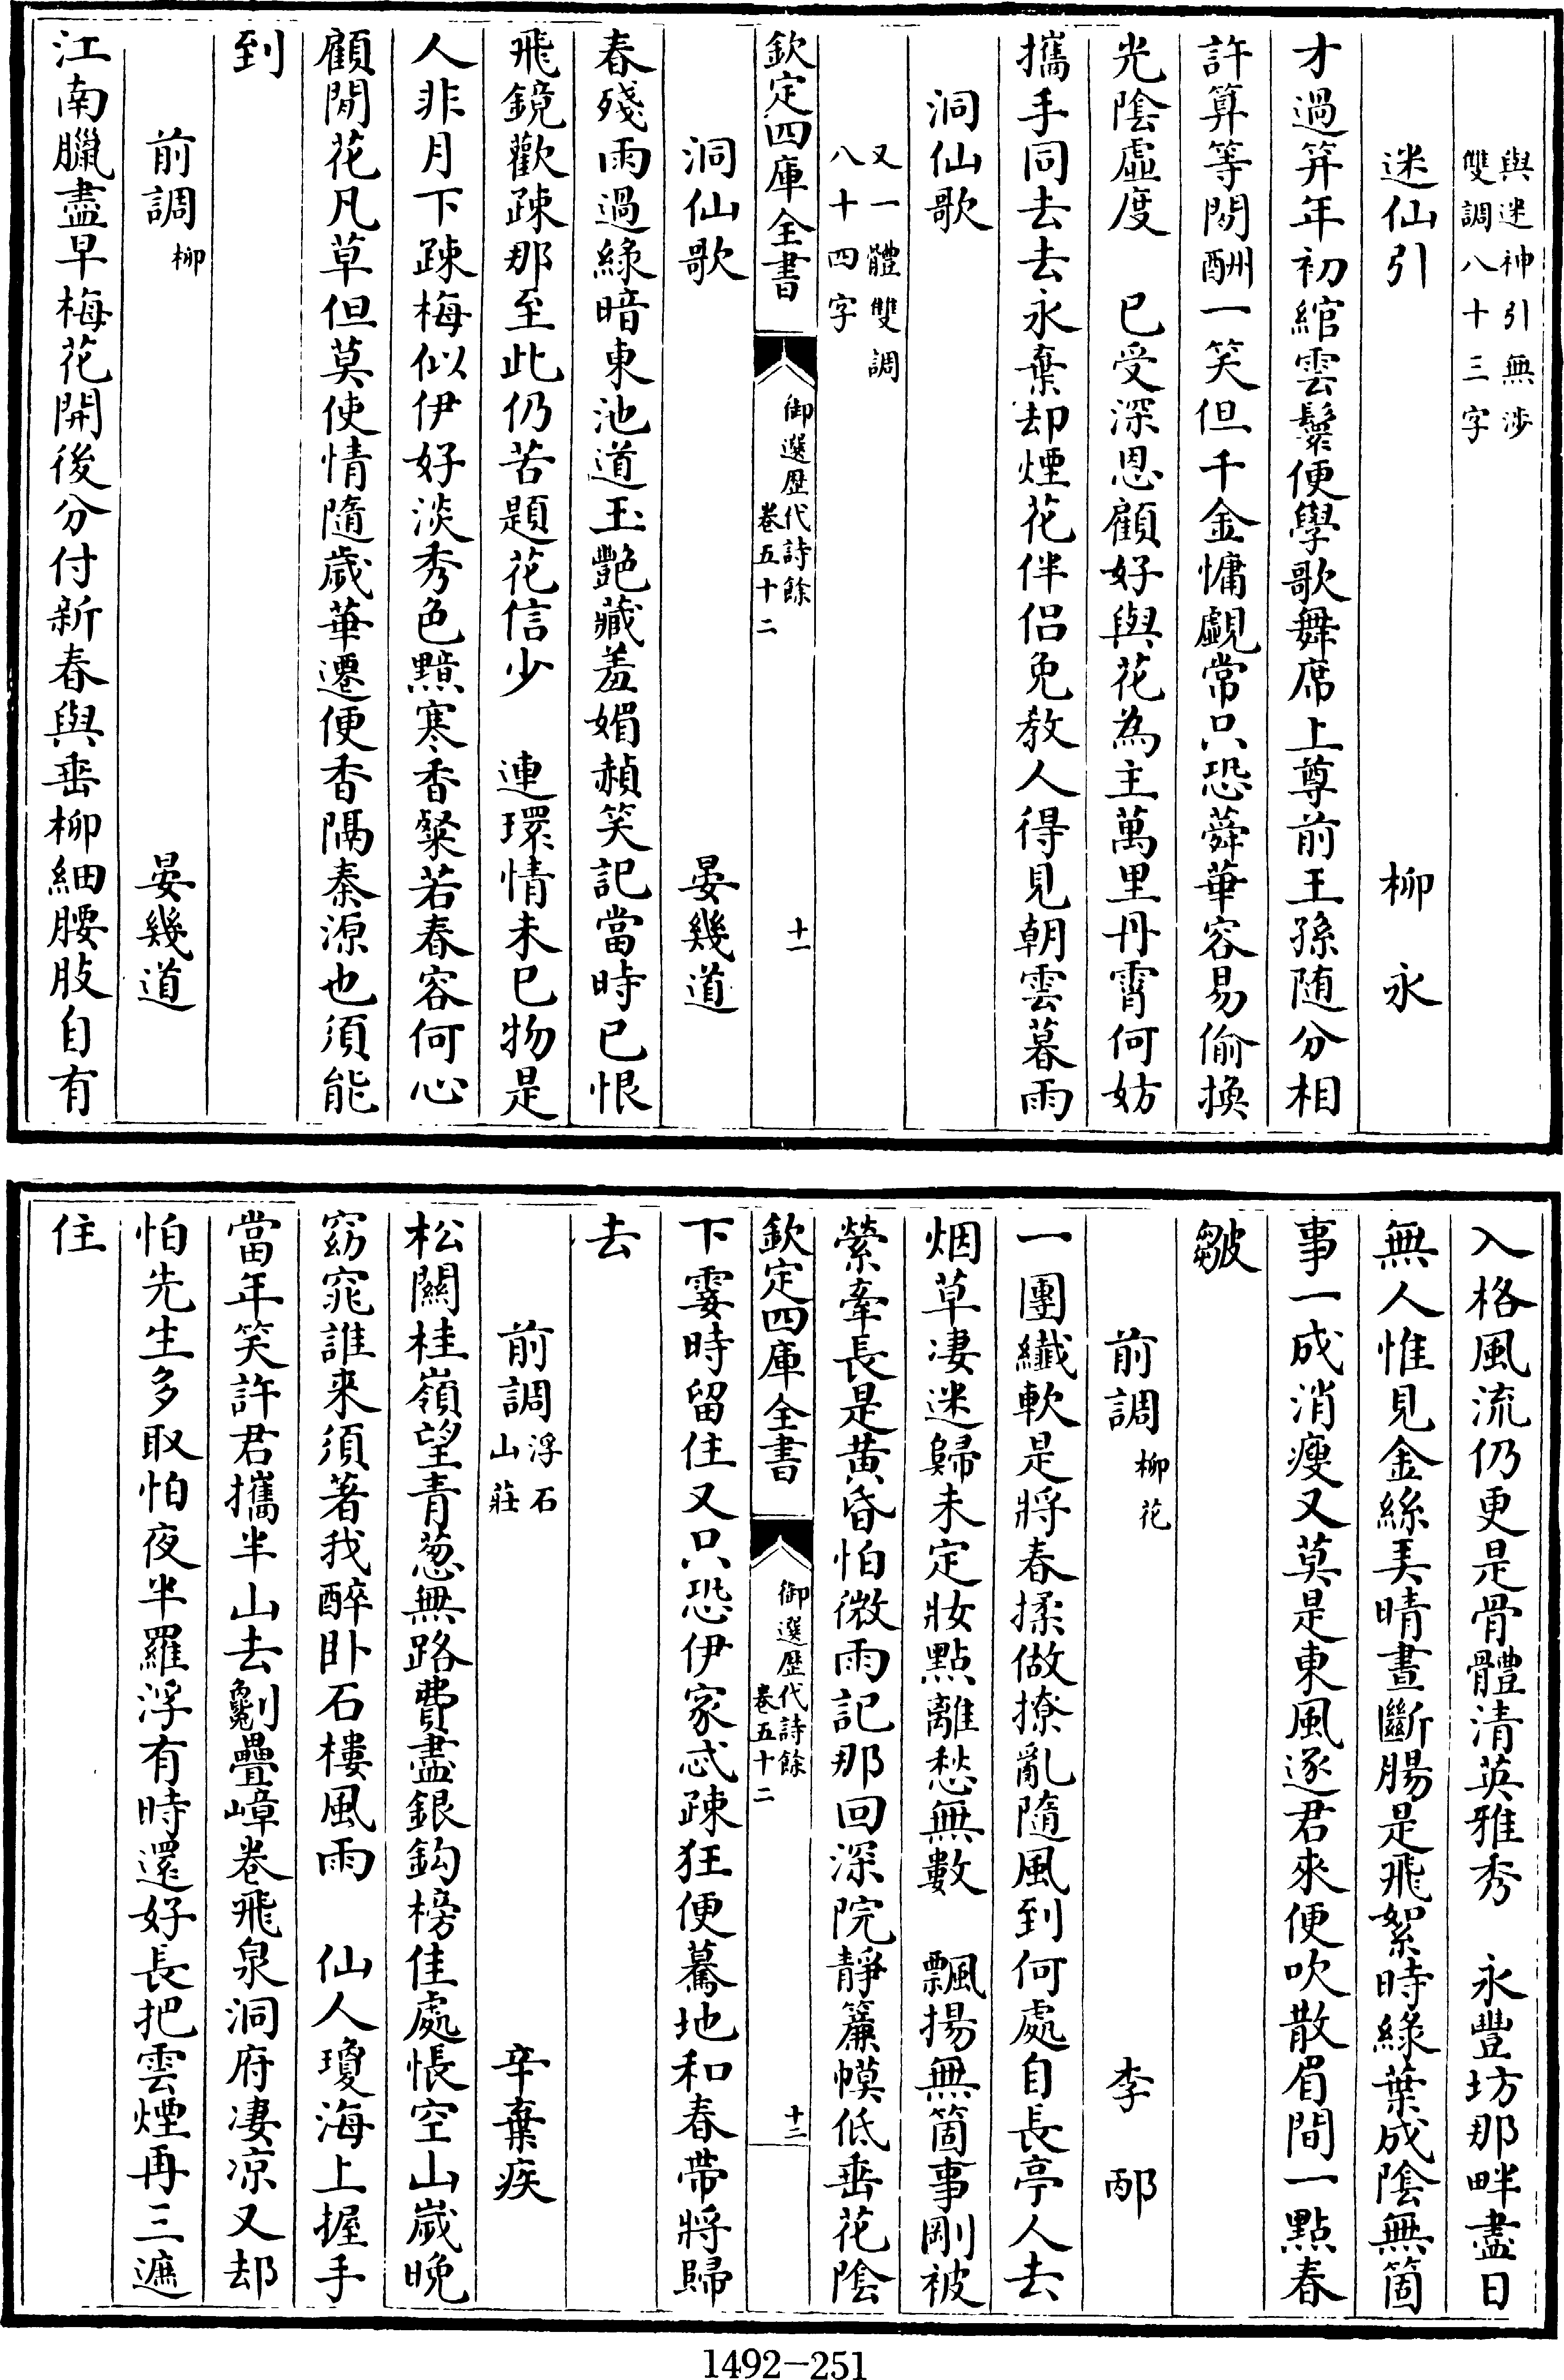 與迷神引無涉
雙調八十三字
迷仙引　柳永
才過笄年初綰雲鬟便學歌舞席上尊前王孫随分相
許算等閒酬一笑但千金慵覷常只恐蕣華容易偷換
光陰虛度　已受深恩顧好與花為主萬里丹霄何妨
攜手同去去永棄却煙花伴侣免教人得見朝雲暮雨
洞仙歌
又一體雙調
八十四字
欽定四庫全書　御選歴代詩餘卷五十二　十一
洞仙歌　晏幾道
春殘雨過緑暗東池道玉艷藏羞媚赬笑記當時已恨
飛鏡歡疎那至此仍苦題花信少　連環情未已物是
人非月下疎梅似伊好淡秀色黯寒香粲若春容何心
顧閒花凡草但莫使情隨歲華遷便杳隔秦源也須能
到
前調柳　晏幾道
江南臘盡早梅花開後分付新春與垂柳細腰肢自有
入格風流仍更是骨體清英雅秀　永豐坊那畔盡日
無人惟見金絲弄晴晝斷腸是飛絮時緑葉成陰無箇
事一成消瘦又莫是東風逐君來便吹散眉間一點春
皺
前調柳花　李邴
一團纖軟是將春揉做撩亂隨風到何處自長亭人去
烟草凄迷歸未定妝點離愁無數　飄揚無箇事剛被
縈牽長是黄昏怕微雨記那回深院靜簾幙低垂花陰
欽定四庫全書　御選歴代詩餘卷五十二　十二
下霎時留住又只恐伊家忒疎狂便驀地和春帶將歸
去
前調浮石山莊　辛棄疾
松關桂嶺望青葱無路費盡銀鈎榜佳處悵空山歲晚
窈窕誰来須著我醉卧石樓風雨　仙人瓊海上握手
當年笑許君攜半山去劖疊嶂卷飛泉洞府凄凉又却
怕先生多取怕夜半羅浮有時還好長把雲煙再三遮
住
1492-251